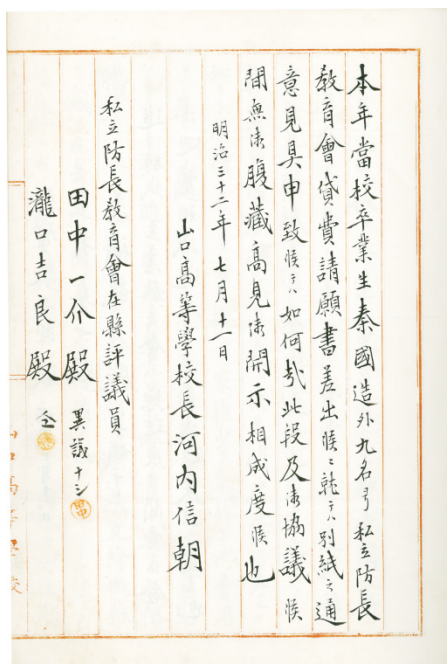 本年當校卒業生秦國造外九名ヨリ私立防長
教育會貸費請願書差出候ニ就テハ別紙之通
意見具申致候テハ如何哉此段及御協議候
間無御腹藏高見御開示相成度候也
明治三十二年七月十一日
山口高等學校長河内信朝
私立防長教育會在縣評議員
田中一介殿 異議ナシ
瀧口吉良殿 仝
山口高等學校